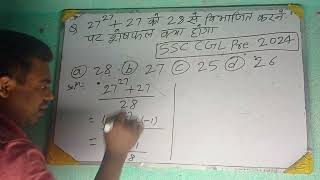 Q. 27²⁷ + 27 को 28 से विभाजित करने
पर शेषफल क्या होगा
SSC CGL Pre 2024
ⓐ 28 ⓑ 27 ⓒ 25 ⓓ 26
Solⁿ
27²⁷ + 27
28
= (-1)
=
8